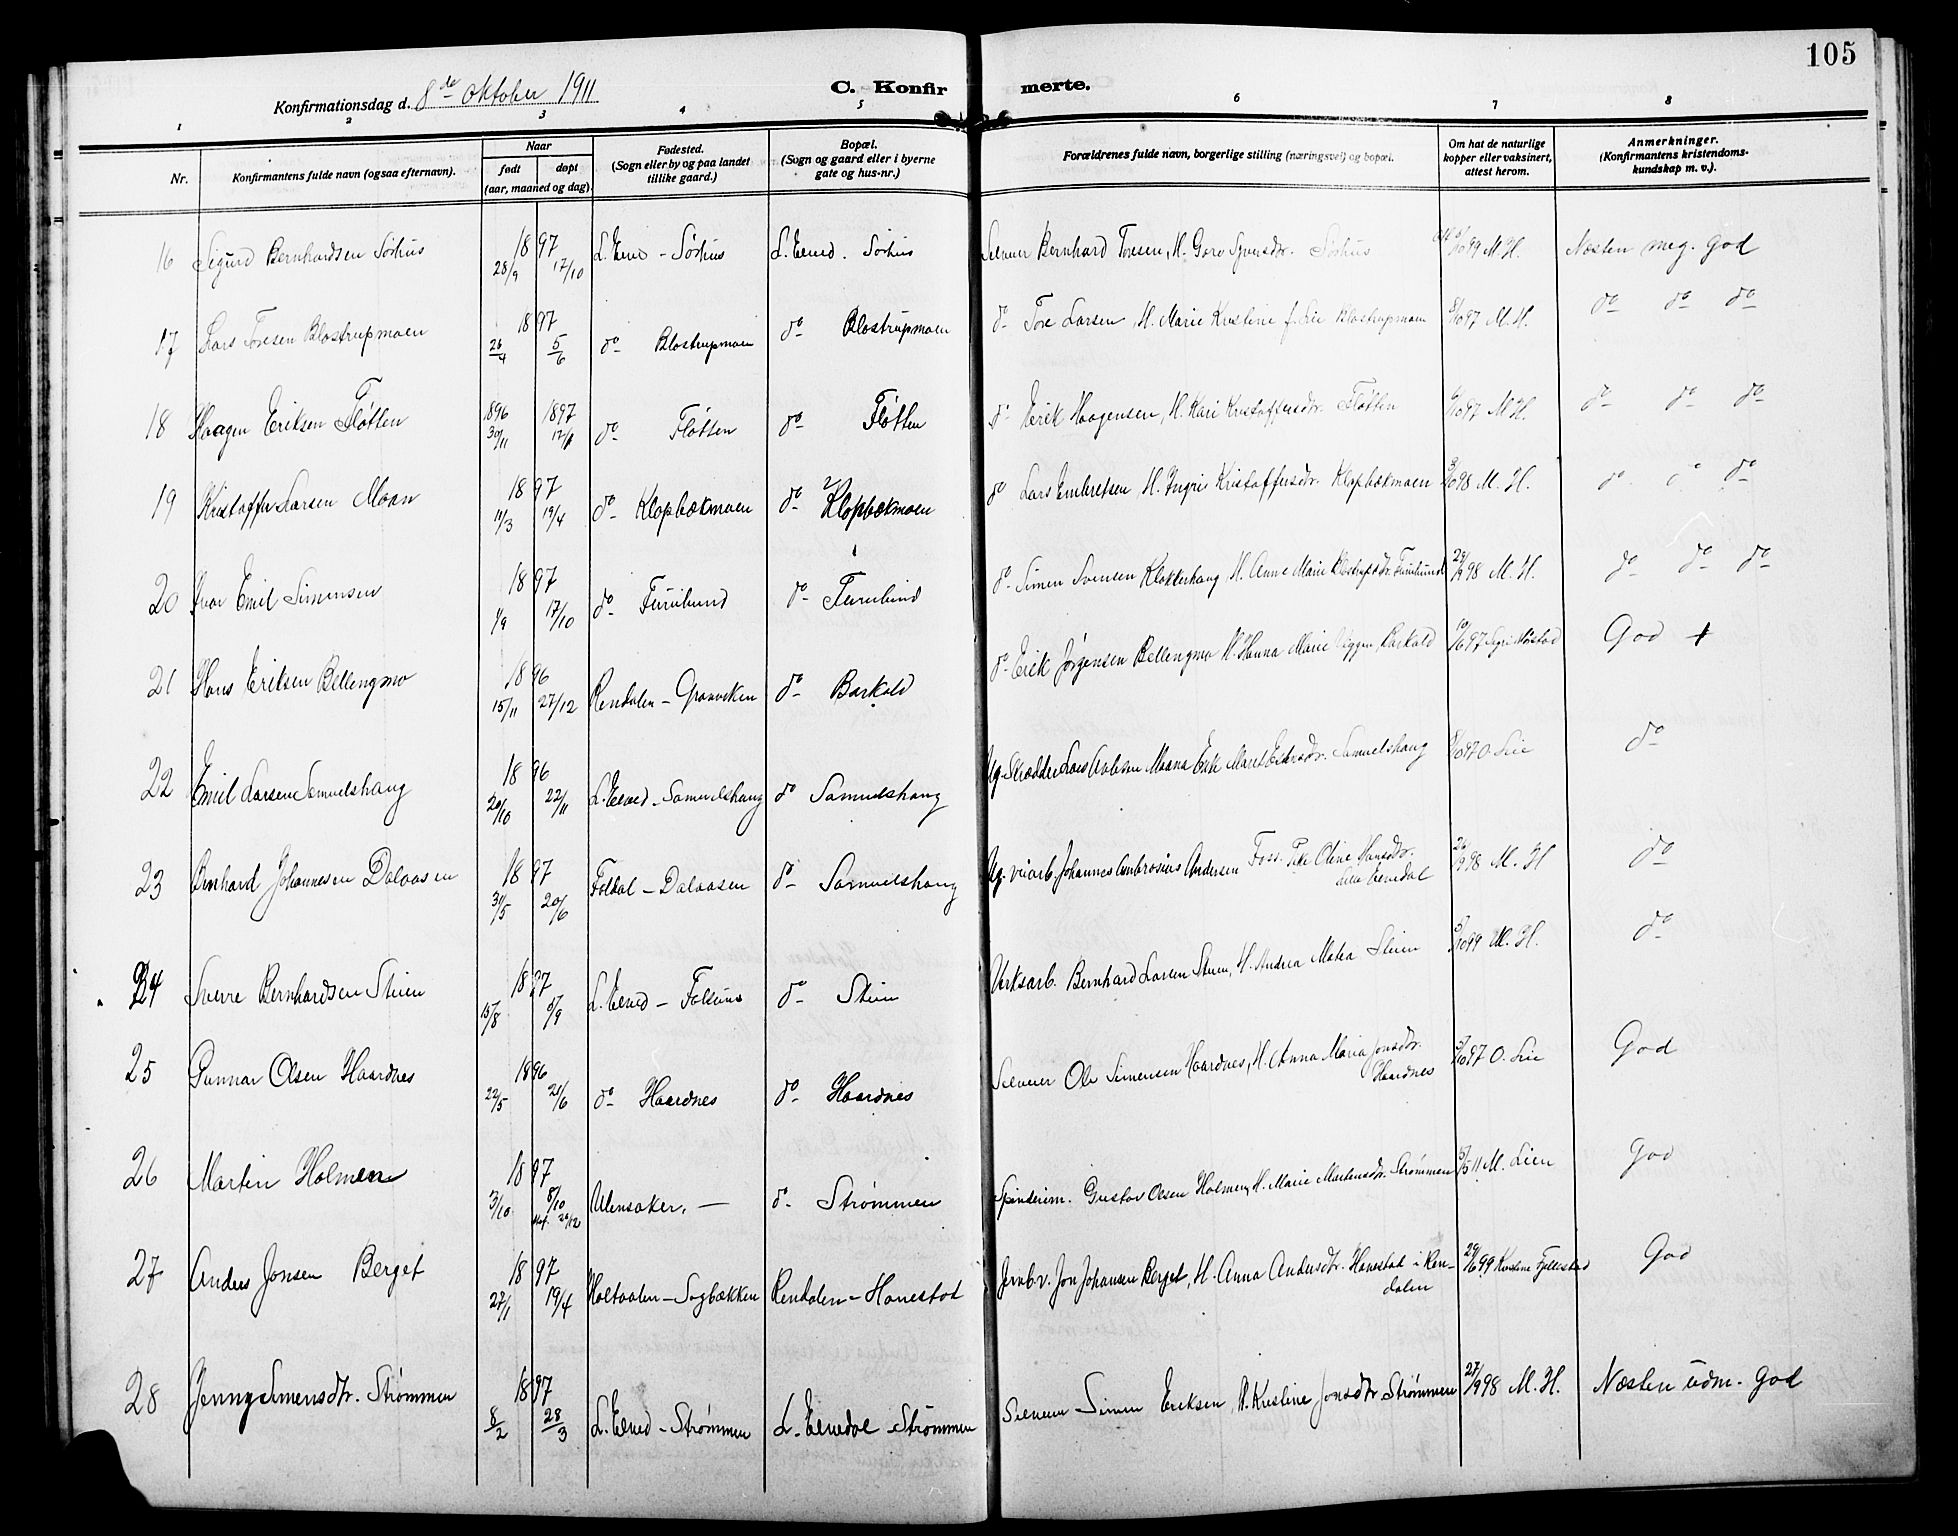 105
Konfirmationsdag d. 8de oktober 1911
C. Konfirmerte.
1 2 3 4 5 6 7 8
Nr.
Konfirmantens fulde navn (ogsaa efternavn).
Naar
født døpt
(aar, maaned og dag)
Fødested.
(Sogn eller by og paa landet
tillike gaard.)
Bopæl.
(Sogn og gaard eller i byerne
gate og hus-nr.)
Forældrenes fulde navn, borgerlige stilling (næringsvei) og bopæl.
Om hat de naturlige
kopper eller vaksinert,
attest herom.
Anmerkninger.
(Konfirmantens kristendoms-
kundskap m. v.).
16 Sigurd Bernhardsen Sørhus 1897 28/9 17/10 L. Elved - Sørhus L. Elved. Sørhus Selveier Bernhard Toresen, H. Goro Sørhus 99 M. H. Næsten meg. god
17 Lars Toresen Blostrupmoen 1897 26/4 5/6 do Blostrupmoen do Blostrupmoen do Tore Larsen, H. Marie Kristine f. Lie Blostrupmoen 8/10 97 M. H. do do do
18 Haagen Eriksen Fløtten 1896 30/11 1897 do Fløtten do Fløtten do Erik Haagensen, H. Kari Kristoffersdtr. Fløtten 97 M. H. do do do
19 Kristoffer Larsen Moan 1897 11/3 19/4 do Klopbækmoen do Klopbækmoen do Lars Embretsen, H. Ingri Kristoffersdtr. Klopbækmoen 98 M. H. do do do
20 Ivar Emil Simensen 1897 1/9 17/10 do Furulund do Furulund do Simen Svensen Klokkerhaug, H. Anne Marie Furulund 29/9 98 M. H. do do do
21 Hans Eriksen Bellengmo 1896 15/11 27/12 Rendalen - Graaviken do Barkald do Erik Jørgensen Bellengmo H. Hanna Marie Barkald 97 God +
22 Emil Larsen Samuelshaug 1896 20/10 22/11 L. Elved - Samuelshaug do Samuelshaug Ug. Skrædder Lars Moana Enke Marit Samuelshaug 97 O. Lie do
23 Bernhard Johannesen Dalaasen 1897 31/5 20/6 Foldal - Dalaasen do Samuelshaug Ug. veiarb. Johannes Ambrosius Andersen Foss. Pike Oline Hansdtr.
Lille Elvedal 98 M. H do
24 Sverre Bernhardsen Steien 1897 15/8 5/9 L. Elved - do Steien Verksarb. Bernhard Larsen Steien, H. Andrea Matea Steien 99 M. H. do
25 Gunnar Olsen Haardnes 1896 22/5 21/6 do Haardnes do Haardnes Selveier Ole Simensen Haardnes, H. Anna Maria Jonsdtr.
Haardnes 97 O. Lie God
26 Martin Holmen 1897 3/10 8/10 26/12 Ulensaker. - do Strømmen Spinderim. Gustav Olsen Holmen, H. Marie Martinsdtr. Strømmen 5/5 11 M. Lien God
27 Anders Jonsen Berget 1897 27/1 19/4 Holtaalen - Sagbækken Rendalen - Hanestad Jernb.v. Jon Johansen Berget, H. Anna Andersdtr. Hanestad i Ren-
dalen 29/6 99 Kristine Fjellestad God
28 Jenny Simensdtr. Strømmen 1897 8/2 28/3 L. Elved - Strømmen L. Elvedal - Strømmen Selveier Simen Eriksen, H. Kristine Jonsdtr Strømmen 27/9 98 M. H. Næsten udm. god